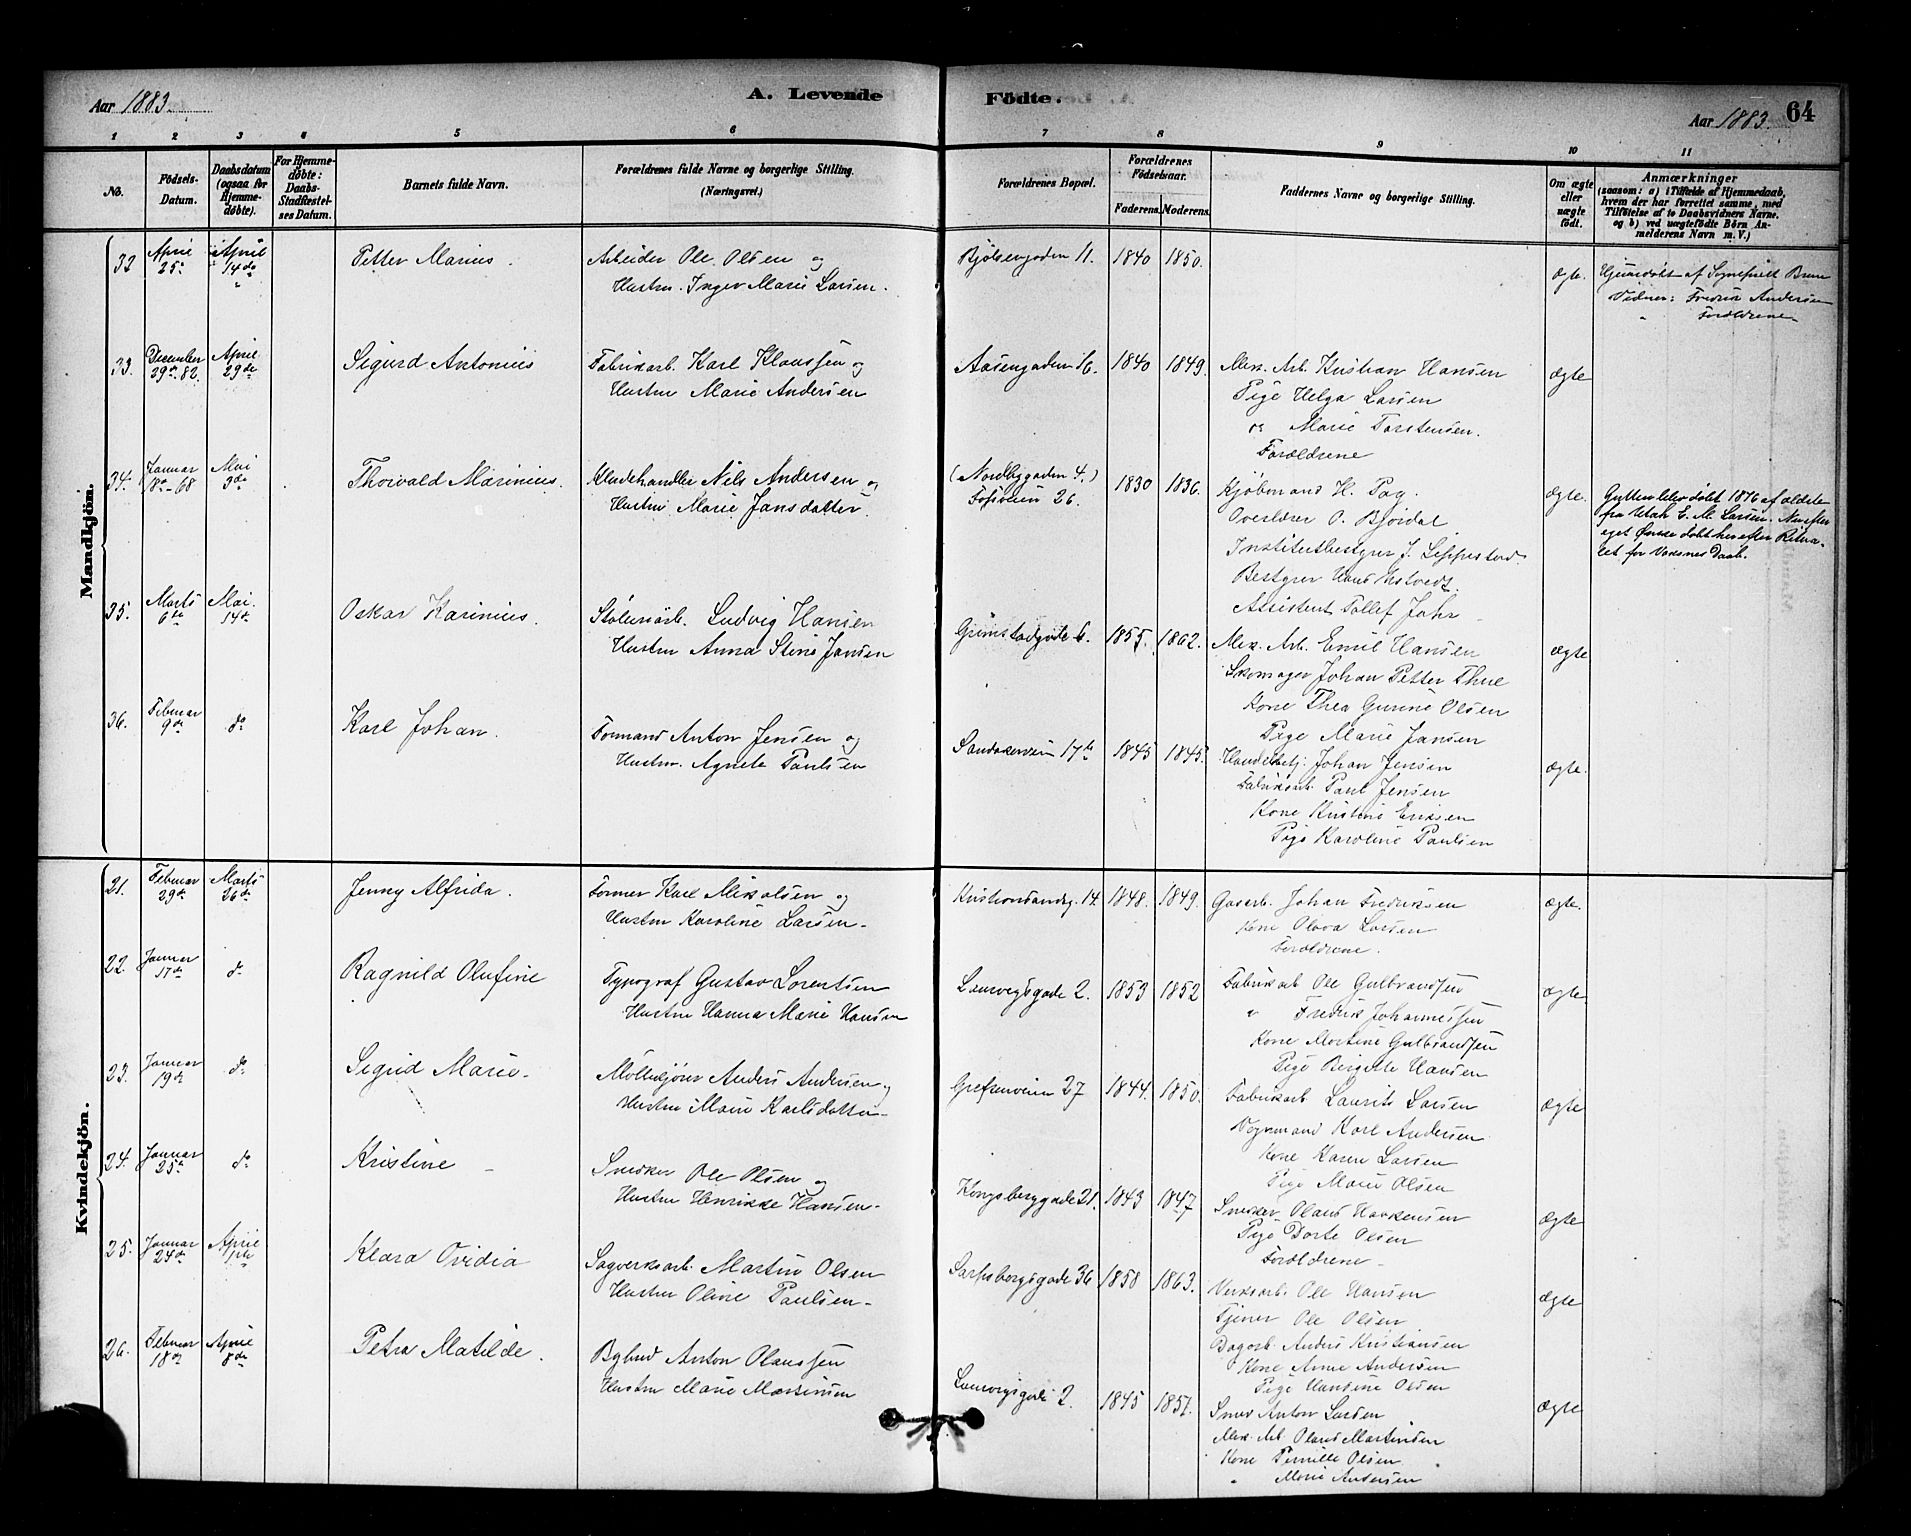 Aar 1883.
A. Levende
Födte.
Aar 1883.
64
1 2 3 4 5 6 7 8 9 10 11
No.
Födsels-
Datum.
Daabsdatum
(ogsaa for
Hjemme-
døbte).
For Hjemme-
døbte:
Daabs-
Stadfæstel-
ses Datum.
Barnets fulde Navn.
Forældrenes fulde Navne og borgerlige Stilling.
(Næringsvei.)
Forældrenes Bopæl.
Forældrenes
Fødselsaar.
Faderens.
Moderens.
Faddernes Navne og borgerlige Stilling.
Om ægte
eller
uægte
født.
Anmærkninger
(saasom: a) i Tilfælde af Hjemmedaab,
hvem der har forrettet samme, med
Tilføielse af to Daabsvidners Navne.
og b) ved uægtefødte Børn An-
melderens Navn m. V.)
Mandkjön.
32
April
25
April
14de
Petter Marius.
Arbeider Ole Olsen og
Hustru Inger Marie Larsen.
Bjølsengaden 11.
1840
1850.
ægte.
Hjemmedøbt af Sogneprest Brun
Vidner: Fredrik Andersen
Forældrene
33.
December
29de 82.
April
29de
Sigurd Antonius
Fabrikarb. Karl Klaussen og
Hustru Marie Andersen
Aasengaden 16.
1840
1849.
Mek. Arb. Kristian Hansen
Pige Helga Larsen
og Marie Torstensen.
Forældrene
ægte
34.
Januar
18de 68
Mai
3de
Thorvald Marinius.
Kludehandler Nils Andersen og
Hustru Marie Jansdatter.
(Nordbygaden 4.)
Fosveien 26.
1830
1836.
Kjøbmand H. Pag.
Overlærer O. Bjørdal
Institutbestyrer J. Lippestad
Bestyrer Hans
Assistent Tollef Jahr
ægte.
Gutten blev døbt 1876 af ældste
fra Utah E. M. Larsen. Nu efter
eget Ønske døbt her efter Ritua-
let for Voxnes Daab.
35.
Marts
6te
Mai.
14de
Oskar Karinius.
Støberiarb. Ludvig Hansen
Hustru Anna Stine Jansen
Grimstadgade 6.
1855.
1862.
Mek. Arb. Emil Hansen
Skomager Johan Petter Thue
Kone Thea Gurine Olsen
Pige Marie Jansen
ægte
36.
Februar
9de
do
Karl Johan.
Formand Anton Jensen og
Hustru Agnete Paulsen
Sandakerveien 17b
1845
1845.
Handelsbetj. Johan Jensen
Fabrikarb. Paul Jensen
Kone Kristine Eriksen
Pige Karoline Paulsen
ægte.
Kvindekjön.
21.
Februar
29de
Marts
26de
Jenny Alfrida.
Former Karl Mikalsen og
Hustru Karoline Larsen.
Kristiansandsg. 14.
1848.
1849.
Gasarb. Johan Fredriksen
Kone Olava Larsen
Forældrene.
ægte.
22.
Januar
17de
do
Ragnild Olufine
Typograf Gustav Lorentsen
Hustru Hanna Marie Hansen
Laurvigsgade 2.
1853
1852
Fabrikarb Ole Gulbrandsen
" Fredrik Johannessen
Kone Martine Gulbrandsen
Pige Birgitte Hansen
ægte
23.
Januar
19de
do
Sigrid Marie.
Møllekjører Anders Andersen og
Hustru Marie Karlsdatter
Grefsenveien 27
1844.
1850.
Fabrikarb Laurits Larsen
Vognmand Karl Andersen
Kone Karen Larsen
Pige Marie Olsen
ægte
24.
Januar
25de
do
Kristine
Snedker Ole Olsen og
Hustru Henrikke Hansen.
Kongsberggade 21.
1843
1847
Snedker Olaus Haakensen
Pige Dorte Olsen
Forældrene
ægte
25.
Januar
24de
April
1ste
Klara Ovidia
Sagverksarb. Martin Olsen
Hustru Oline Paulsen.
Sarpsborgsgade 36
1858
1863.
Verksarb. Ole Hansen
Tjener Ole Olsen
Dagarb. Anders Kristiansen
Kone Anne Andersen
Pige Handine Olsen
ægte
26.
Februar
18de
April
8de
Petra Matilde.
Bybud Anton Olaussen
Hustru Marie Martinsen
Laurvigsgade 2.
1845
1851.
Smed Anton Larsen
Mek. Arb. Olaus Martinsen
Kone Pernille Olsen
" Marie Andersen
ægte